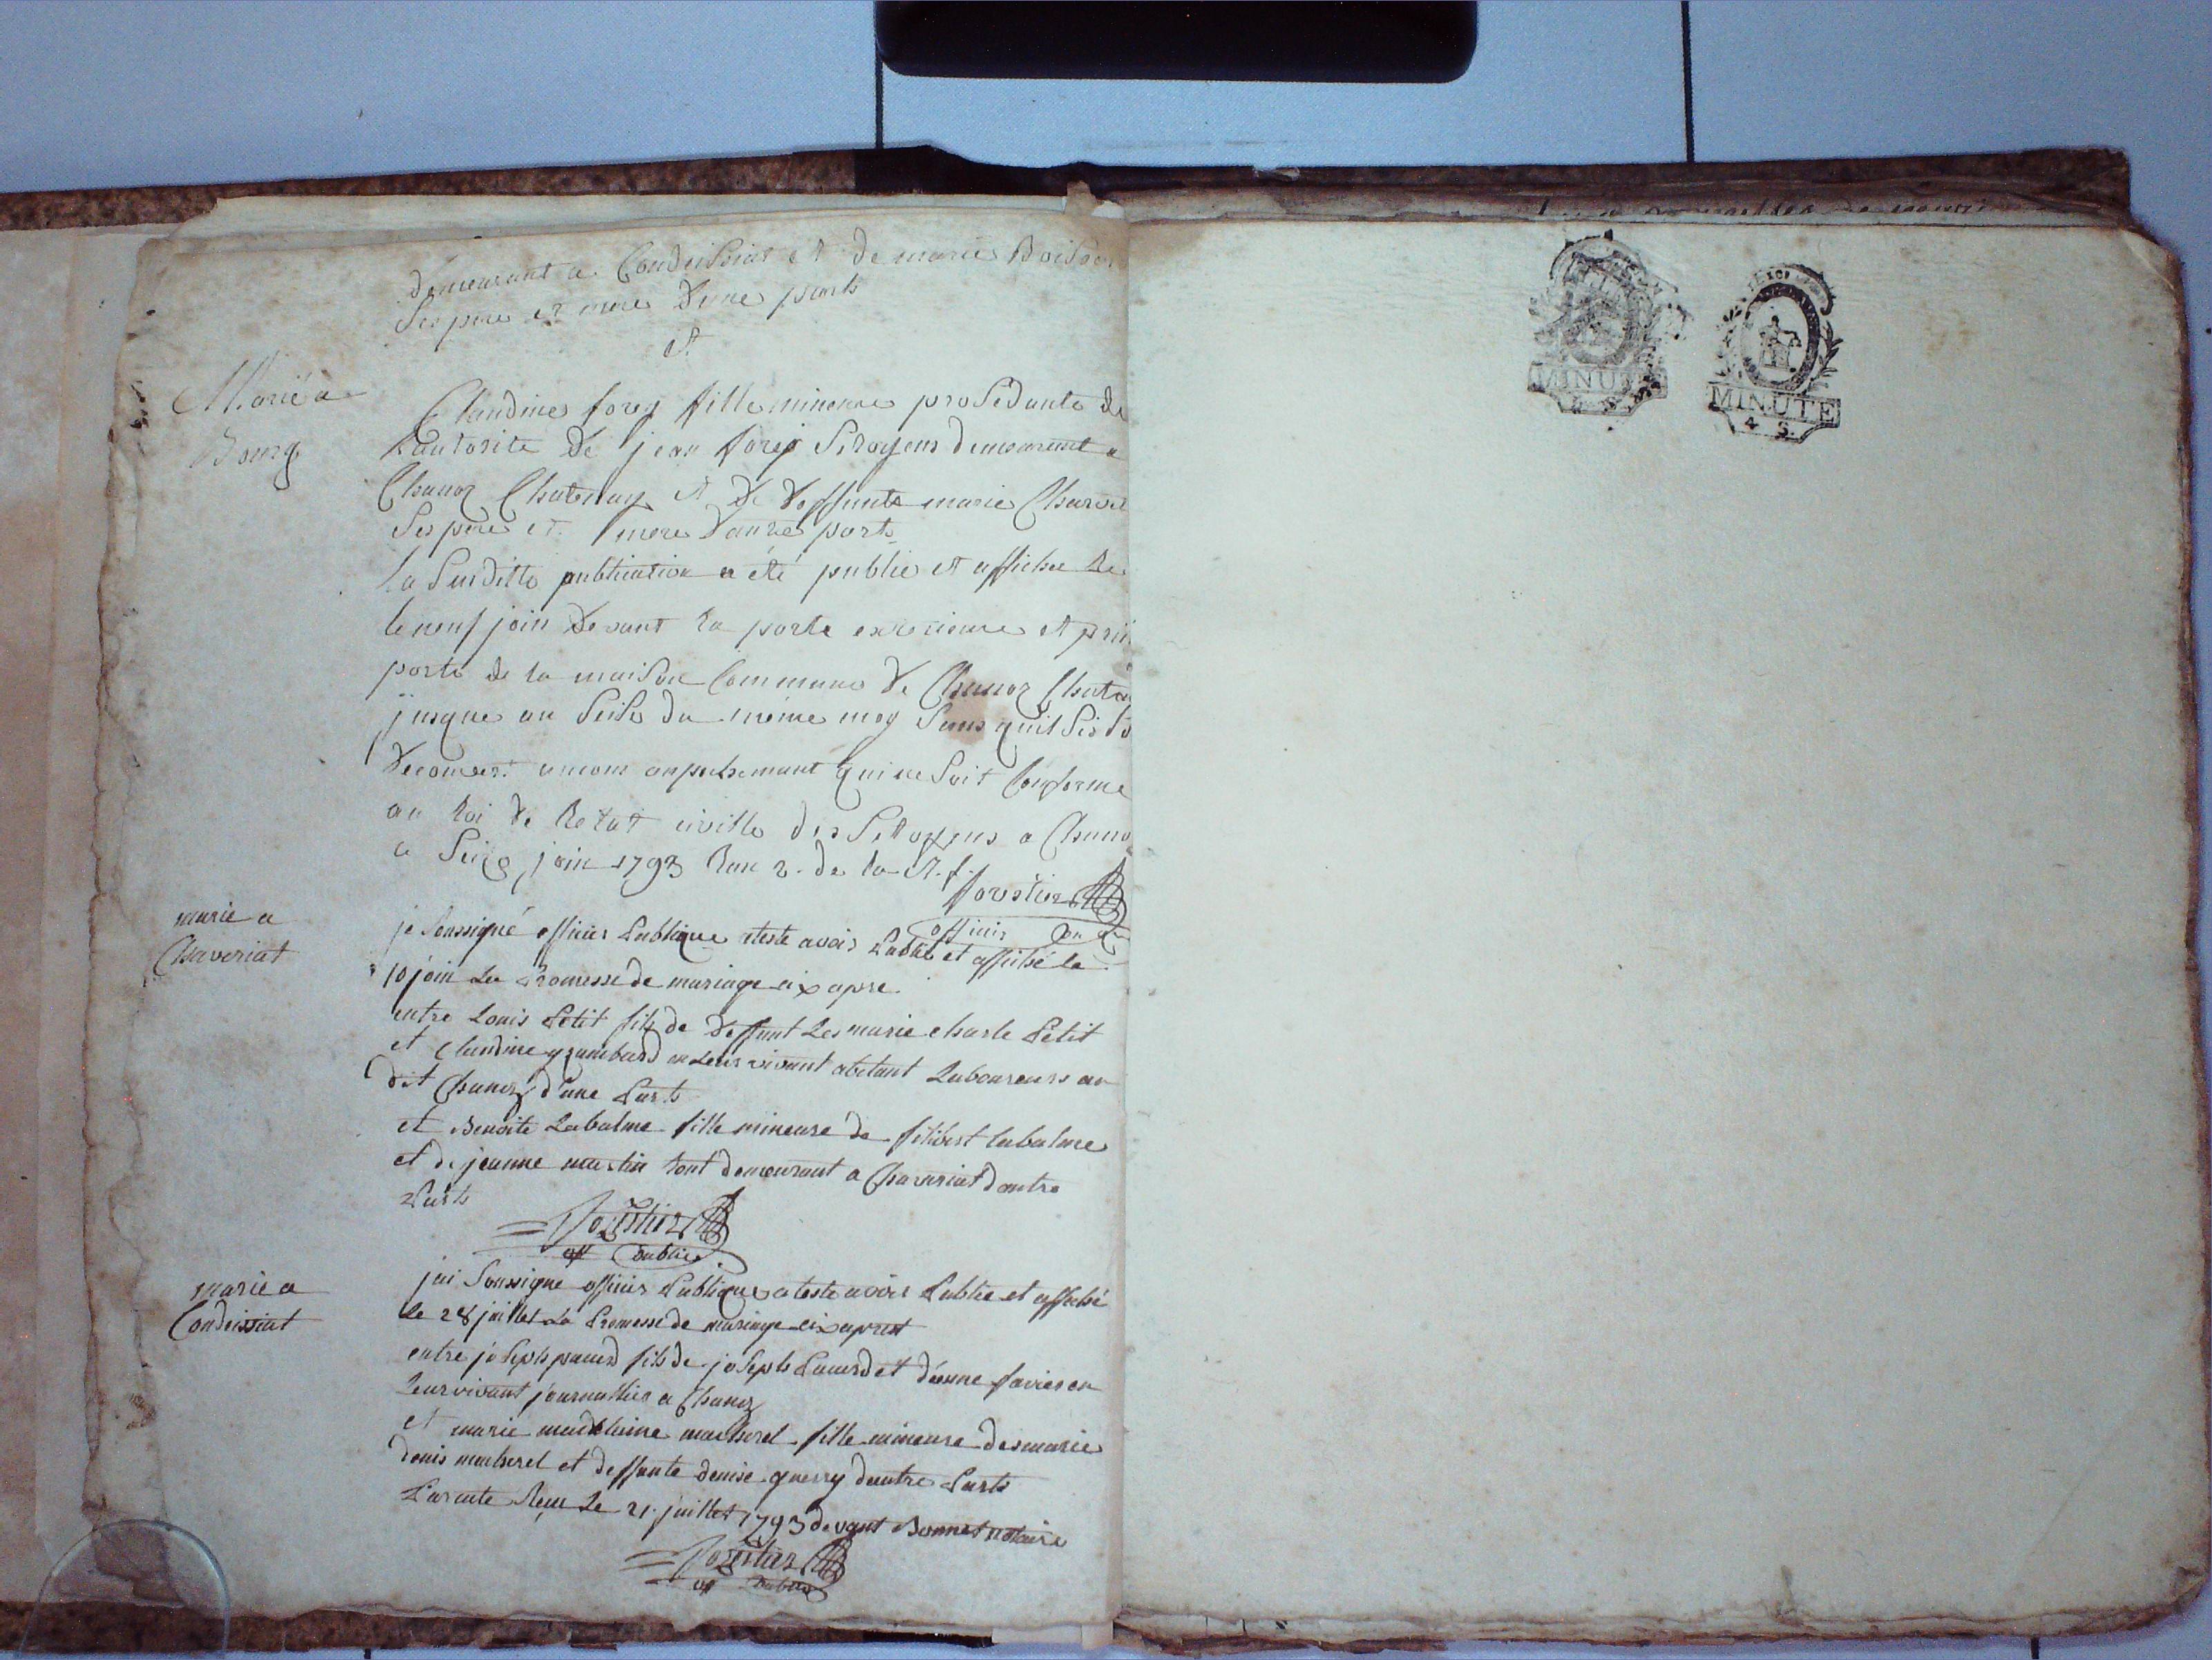 demeurant a Condeisiat et de marie Boison
Ses pere et mere d'une parts
et
Marié a
Bourg
Claudine forey fille mineure prosedante de
Lautorite de jean forey Sitoyens demeurent a
Chanoz Chatenay et de deffunte marie Charvet
Ses pere et mere d'autre parts
la Susditte publication a été publie et affichee le
le neuf join devant la porte exterieure et prin
porte de la maison Commune de Chanoz Chaten
jusque au Seise du même moy Sans quil
aucons anpechemant qui ne soit Conforme
au loi de Letat civille des Sitoyens a Chano
a Seize join 1793 lan 2. de la R. f.
forestier
officier
marie a
Chaveriat
je Soussigné officier Publique ateste avoir Publié et affiché le
10 join La Promesse de mariage cix apre
entre Louis Petit fils de deffunt Les marie charle Petit
et Claudine grambard en Leur vivant abitant Laboureurs au
dit Chanoz d'une Parts
et Benoite Labalme fille mineure de filibert labalme
et de jeanne martin tout demeurant a Chaveriat d'autre
Parts
forestier
off Publice
marie a
Condeissiat
jai Soussigne officier Publique ateste avoir Publié et affiché
le 28 juillet La Promesse de mariage cix aprest
entre joseph pauerd fils de joseph Pauerd et d'eanne favier en
Leur vivant journallier a Chanoz
et marie madelaine macherel fille mineure des marie
denis macherel et deffunte denise guerry dautre Parts
Par acte Reçu Le 21. juillet 1793 devant Bonnet notaire
forestier
off Publice
MINUTE
4 S.
MINUTE
4 S.